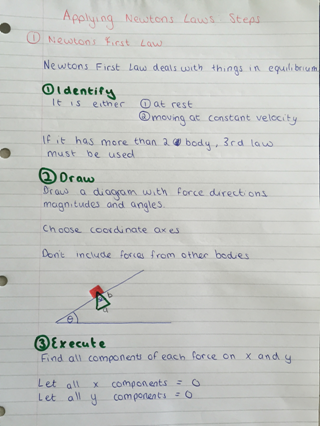 Applying Newtons Laws Steps
① Newtons First Law
Newtons First Law deals with things in equilibrium.
① Identify
It is either ① at rest
② moving at constant velocity
If it has more than 2 body, 3rd law
must be used
② Draw
Draw a diagram with force directions
magnitudes and angles.
Choose coordinate axes
Don't include forces from other bodies
b
a
θ
③ Execute
Find all components of each force on x and y
Let all x components = 0
Let all y components = 0